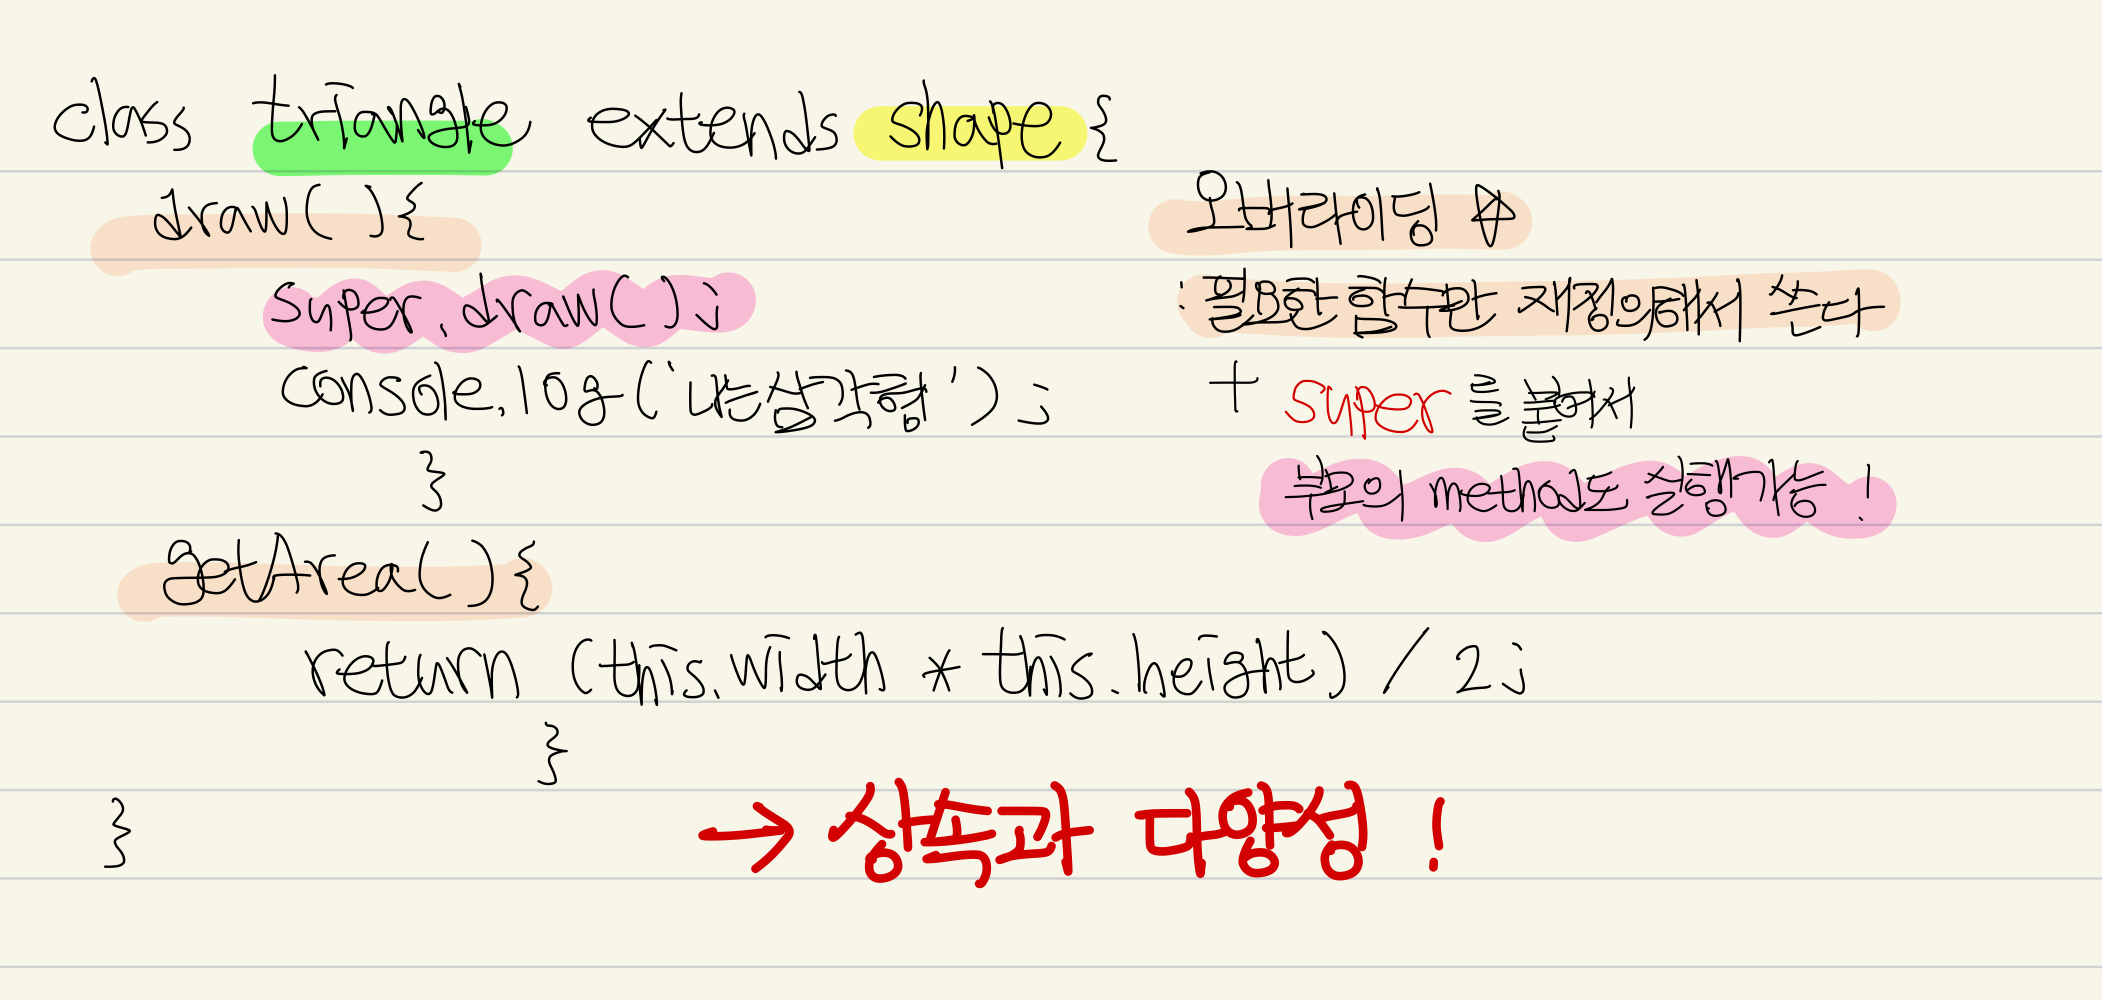 class triangle extends shape {
draw( ){
super.draw( );
console.log('나는삼각형');
}
getArea( ){
return (this.width * this.height) / 2;
}
}
오버라이딩 ☆
: 필요한 함수만 재정의해서 쓴다
+ super 를 붙여서
부모의 method도 실행가능 !
→ 상속과 다양성 !